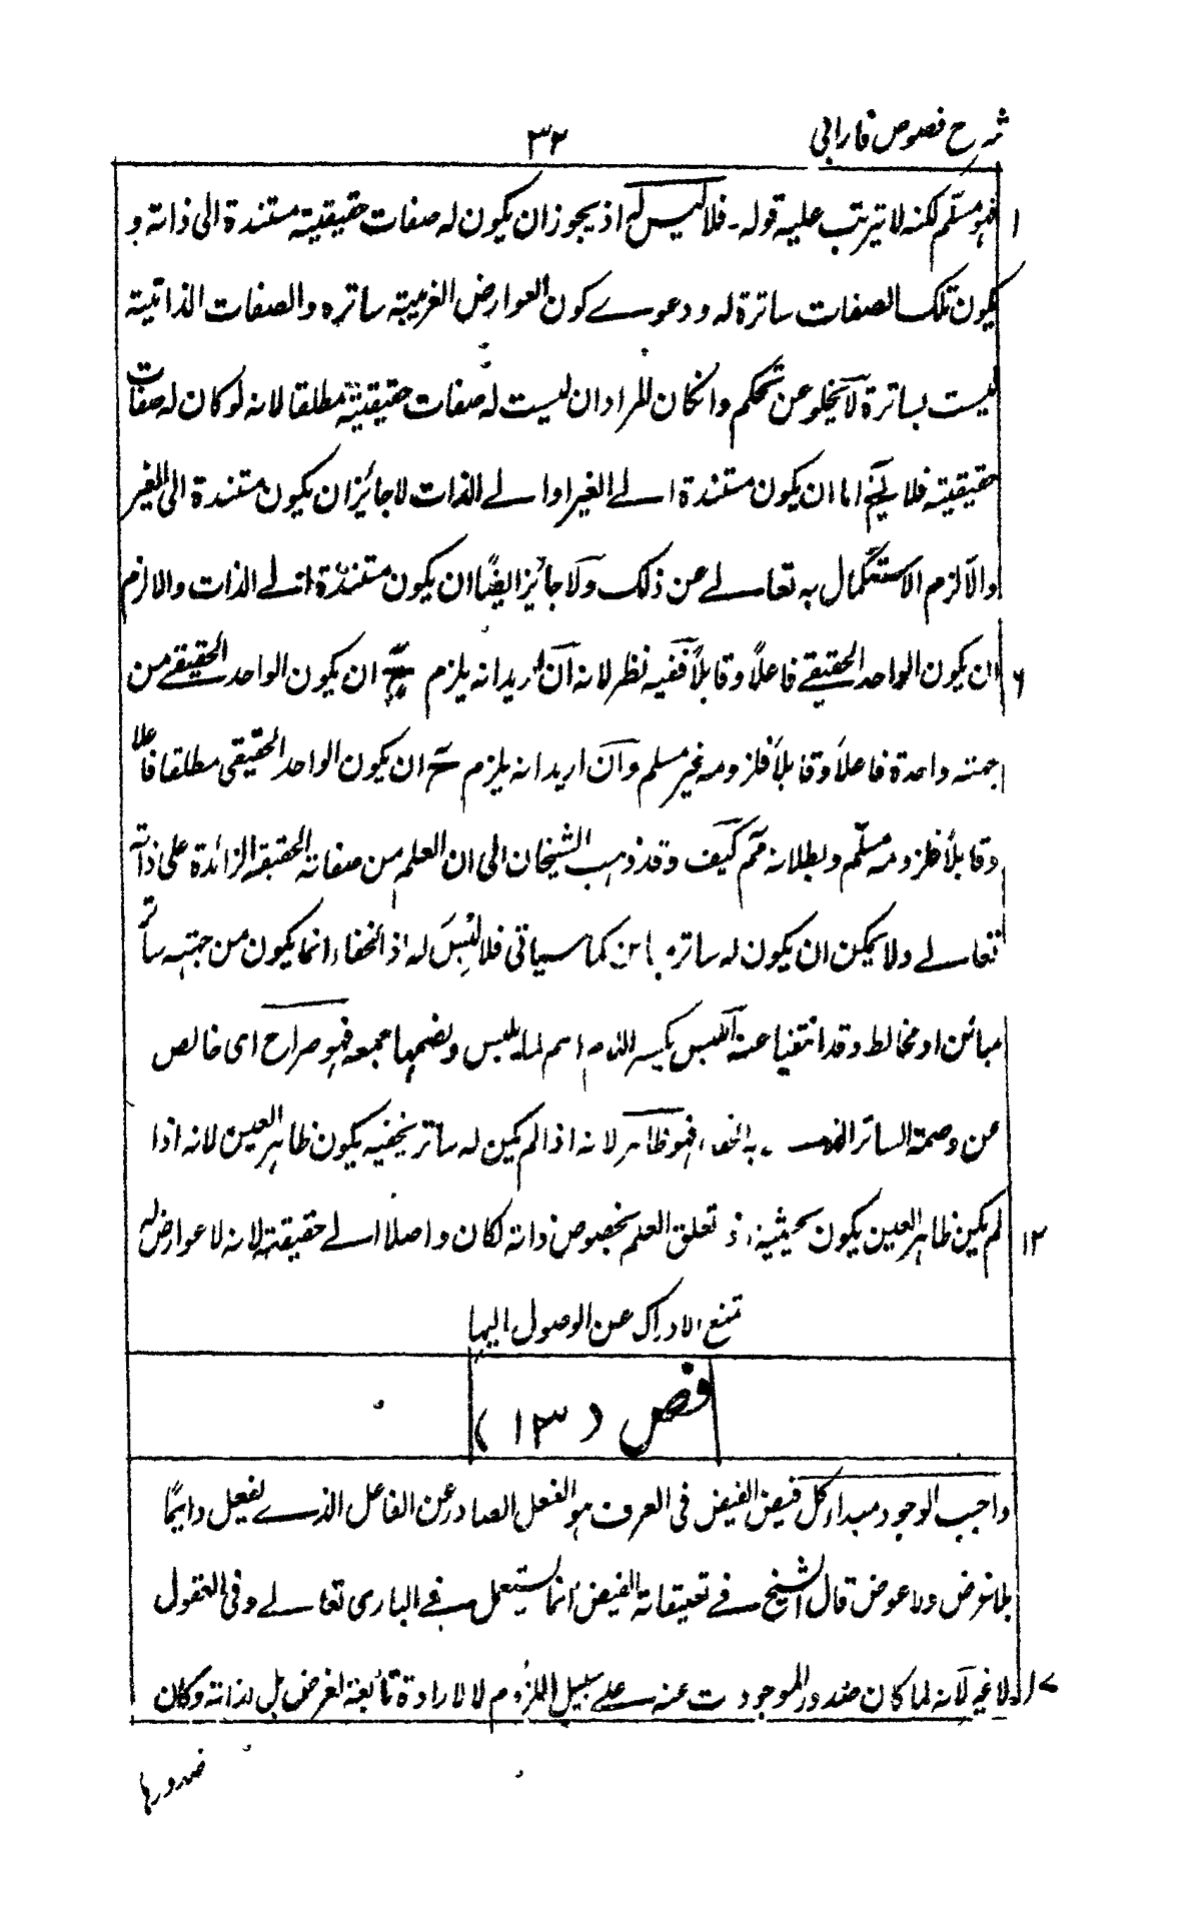 شرح فصوص فارابی
۳۲
۱ فهو مسلّم لكنه لا يترتب عليه قوله۔ فلا لبس له اذ يجوز ان يكون له صفات حقيقية مستندة الى ذاته و
يكون تلك الصفات ساترة له ودعوے كون العوارض الغريبة ساتره والصفات الذاتية
ليست بساترة لا يخلو عن تحكم وانكان المراد ان ليست له صفات حقيقية مطلقا لانه لو كان له صفات
حقيقية فلا يخ اما ان يكون مستندة الے الغير او الے الذات لا جائز ان يكون مستندة الى الغير
والا لزم الاستكمال به تعالے عن ذلك ولا جائز ايضًا ان يكون مستندة الے الذات والا لزم
۶ ان يكون الواحد الحقيقے فاعلاً وقابلاً ففيه نظر لانه ان اريد انه يلزم ح ان يكون الواحد الحقيقے من
جهته واحدة فاعلاً وقابلاً فلزومه غير مسلم وان اريد انه يلزم ح ان يكون الواحد الحقيقى مطلقا فاعلا
وقابلاً فلزومه مسلّم وبطلانه مم كيف وقد ذهب الشيخان الى ان العلم من صفاته الحقيقة الزائدة على ذاته
تعالے ولا يمكن ان يكون له ساتر مباين كما سياتى فلا لبس له اذ الخفاء انما يكون من جهته ساتر
مبائن او مخالط وقد انتفيا عنه اللبس بكسر اللام اسم لما يلبس وبضمها جمعه فهو صراح اى خالص
عن وصمة الساتر به الخفاء فهو ظاهر لانه اذا لم يكن له ساتر يخفيه يكون ظاهر العين لانه اذا
۱۲ لم يكن ظاهر العين يكون بحيثية تعلق العلم بخصوص ذاته لكان واصلا الے حقيقته لانه لا عوارض له
تمنع الادراك عن الوصول اليها
فص (۱۳)
واجب الوجود مبداء كل فيض الفيض فى العرف هو الفعل الصادر عن الفاعل الذے يفعل دايمًا
بلا غرض ولا عوض قال الشيخ فے تعليقاته الفيض انما يستعمل فے البارى تعالے وفى العقول
۱۷ لا غير لانه لما كان صدور الموجودات عنه علے سبيل اللزوم لا لارادة تابعة لغرض بل لذاته وكان
صدورها